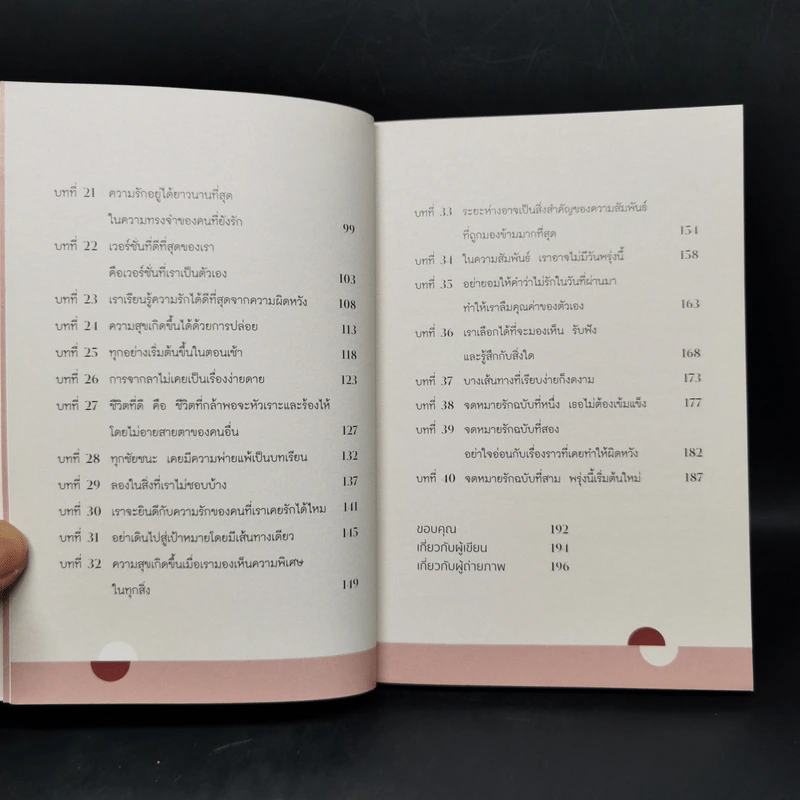 บทที่ 21 ความรักอยู่ได้ยาวนานที่สุด
ในความทรงจำของคนที่ยังรัก 99
บทที่ 22 เวอร์ชั่นที่ดีที่สุดของเรา
คือเวอร์ชั่นที่เราเป็นตัวเอง 103
บทที่ 23 เราเรียนรู้ความรักได้ดีที่สุดจากความผิดหวัง 108
บทที่ 24 ความสุขเกิดขึ้นได้ด้วยการปล่อย 113
บทที่ 25 ทุกอย่างเริ่มต้นขึ้นในตอนเช้า 118
บทที่ 26 การจากลาไม่เคยเป็นเรื่องง่ายดาย 123
บทที่ 27 ชีวิตที่ดี คือ ชีวิตที่กล้าพอจะหัวเราะและร้องไห้
โดยไม่อายสายตาของคนอื่น 127
บทที่ 28 ทุกชัยชนะ เคยมีความพ่ายแพ้เป็นบทเรียน 132
บทที่ 29 ลองในสิ่งที่เราไม่ชอบบ้าง 137
บทที่ 30 เราจะยินดีกับความรักของคนที่เราเคยรักได้ไหม 141
บทที่ 31 อย่าเดินไปสู่เป้าหมายโดยมีเส้นทางเดียว 145
บทที่ 32 ความสุขเกิดขึ้นเมื่อเรามองเห็นความพิเศษ
ในทุกสิ่ง 149
บทที่ 33 ระยะห่างอาจเป็นสิ่งสำคัญของความสัมพันธ์
ที่ถูกมองข้ามมากที่สุด 154
บทที่ 34 ในความสัมพันธ์ เราอาจไม่มีวันพรุ่งนี้ 158
บทที่ 35 อย่ายอมให้คำว่าไม่รักในวันที่ผ่านมา
ทำให้เราลืมคุณค่าของตัวเอง 163
บทที่ 36 เราเลือกได้ที่จะมองเห็น รับฟัง
และรู้สึกกับสิ่งใด 168
บทที่ 37 บางเส้นทางที่เรียบง่ายก็งดงาม 173
บทที่ 38 จดหมายรักฉบับที่หนึ่ง เธอไม่ต้องเข้มแข็ง 177
บทที่ 39 จดหมายรักฉบับที่สอง
อย่าใจอ่อนกับเรื่องราวที่เคยทำให้ผิดหวัง 182
บทที่ 40 จดหมายรักฉบับที่สาม พรุ่งนี้เริ่มต้นใหม่ 187
ขอบคุณ 192
เกี่ยวกับผู้เขียน 194
เกี่ยวกับผู้ถ่ายภาพ 196